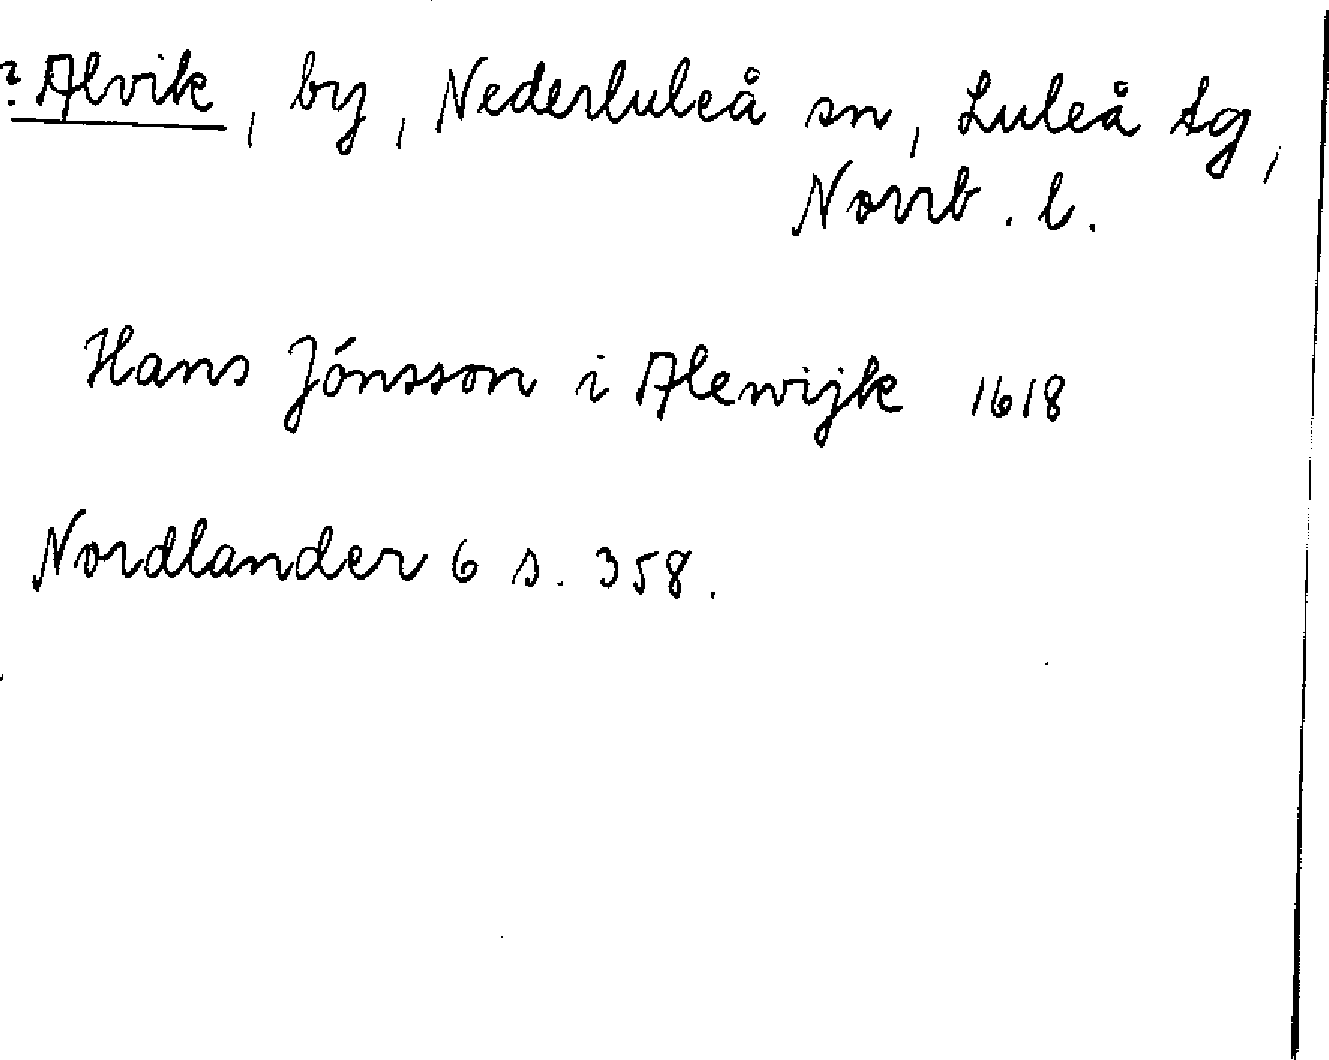 ? Alvik, by, Nederluleå sn, Luleå tg,
Norrb. l.
Hans Jónsson i Alewijk 1618
Nordlander 6 s. 358.